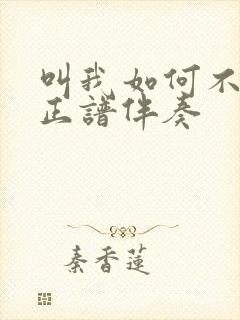 叫我如何不
正谱伴奏
秦香莲